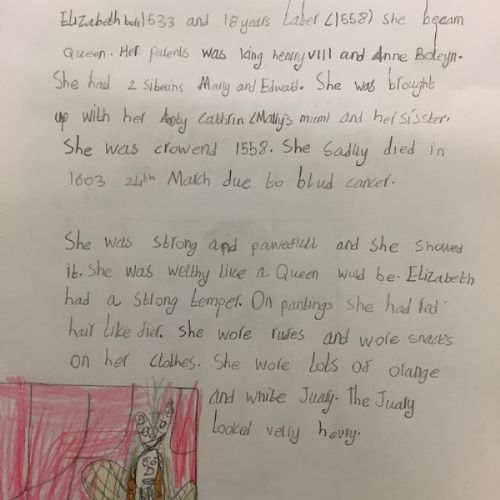 Elizabeth born 1533 and 18 years Later (1558) She becam
Queen. Her patents was king henry VIII and Anne Boleyn.
She had 2 Sibeains Mary and Edward. She was brought
up with her Anty Cathrin (Mary's mum) and her sisster.
She was crowend 1558. She Sadley died in
1603 24th March due to blud cancer.
She was strong and pawerfull and She Showed
it. She was welthy like a Queen wuld be. Elizabeth
had a strong temper. On pantings She had red
hair like dier. She wore rufes and wore snacks
on her Clothes. She wore lots of orange
and white Jualy. The Jualy
looked verry hevvy.